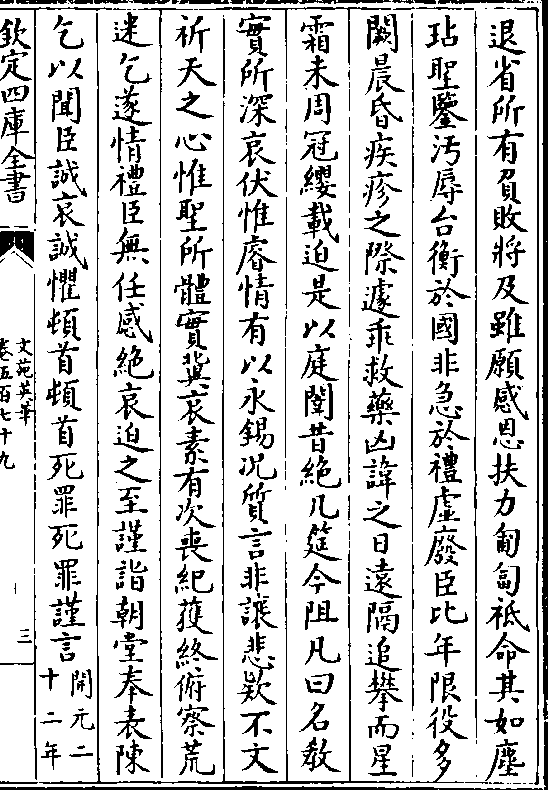 退省所有負敗將及雖願感恩扶力匍匐祗命其如塵
玷聖鑒汚辱台衡於國非急於禮虛廢臣比年限役多
闕晨昏疾疹之際遽乖救藥凶諱之日遠隔追攀而星
霜未周冠纓載迫是以庭闈昔絶几筵今阻凡曰名教
實所深哀伏惟睿情有以永錫况質言非讓悲欵不文
祈天之心惟聖所體實冀哀素有次喪紀獲終俯察荒
迷乞遂情禮臣無任感絶哀迫之至謹詣朝堂奉表陳
乞以聞臣誠哀誠懼頓首頓首死罪死罪謹言開元二十二年
欽定四庫全書
文苑英華
卷五百七十九
三